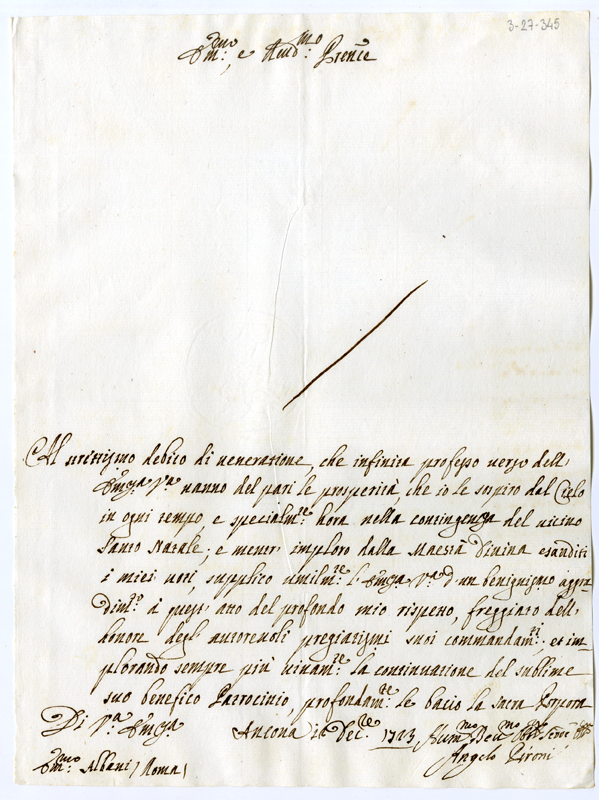 3-27-345
Em:mo, e Reud:mo Prencē
Al strettissimo debito di ueneratione, che infinita professo uerso dell'
Em̃za V.a uanno del pari le prosperità, che io le sospiro dal Cielo
in ogni tempo, e specialm:te hora nella contingenza del uicino
Santo Natale; e mentr' imploro dalla Maestà Diuina esauditi
i miei uoti, supplico umilm:te l' Em̃za V.a d'un benignissimo aggra-
dim:to à quest' atto del profondo mio rispetto, freggiato dell'
honore degl' autoreuoli pregiatissimi suoi commandam:ti; et im-
plorando sempre più uiuam:te la continuatione del sublime
suo benefico Patrocinio, profondam:te le bacio la Sacra Porpora
Di V.a Em̃za Ancona Dec:e 1723 Hum:mo Deu:mo
Em:mo Albani / Roma / Angelo Pironi